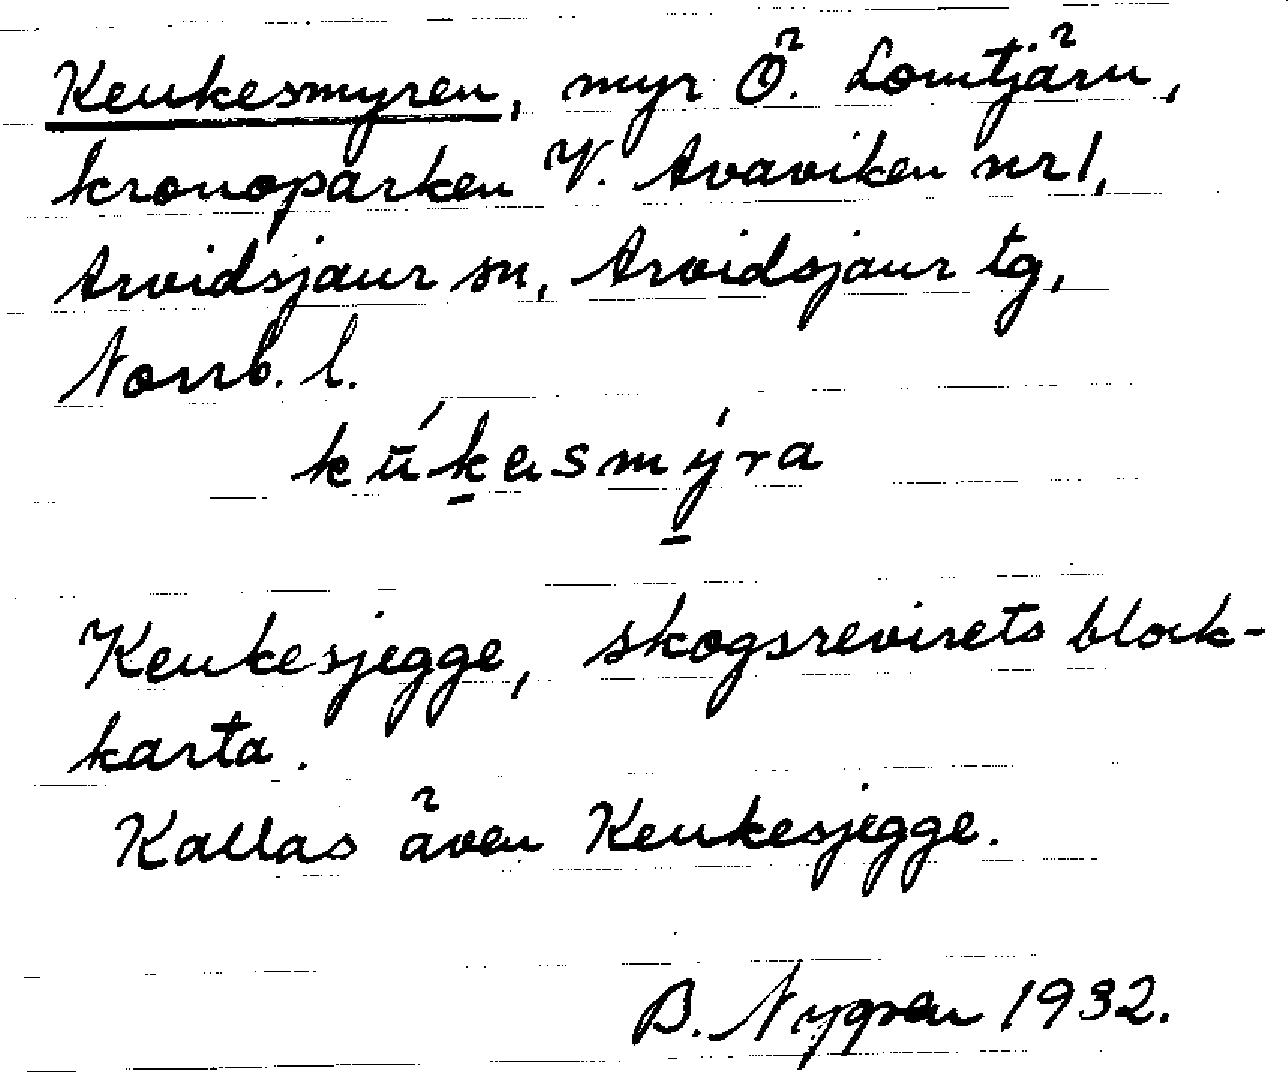 Keukesmyren, myr Ö. Lomtjärn,
kronoparken V. Avaviken nr 1,
Arvidsjaur sn, Arvidsjaur tg,
Norrb. l.
Keukesjegge, skogsrevirets block-
karta.
Kallas även Keukesjegge.
B. Nygren 1932.